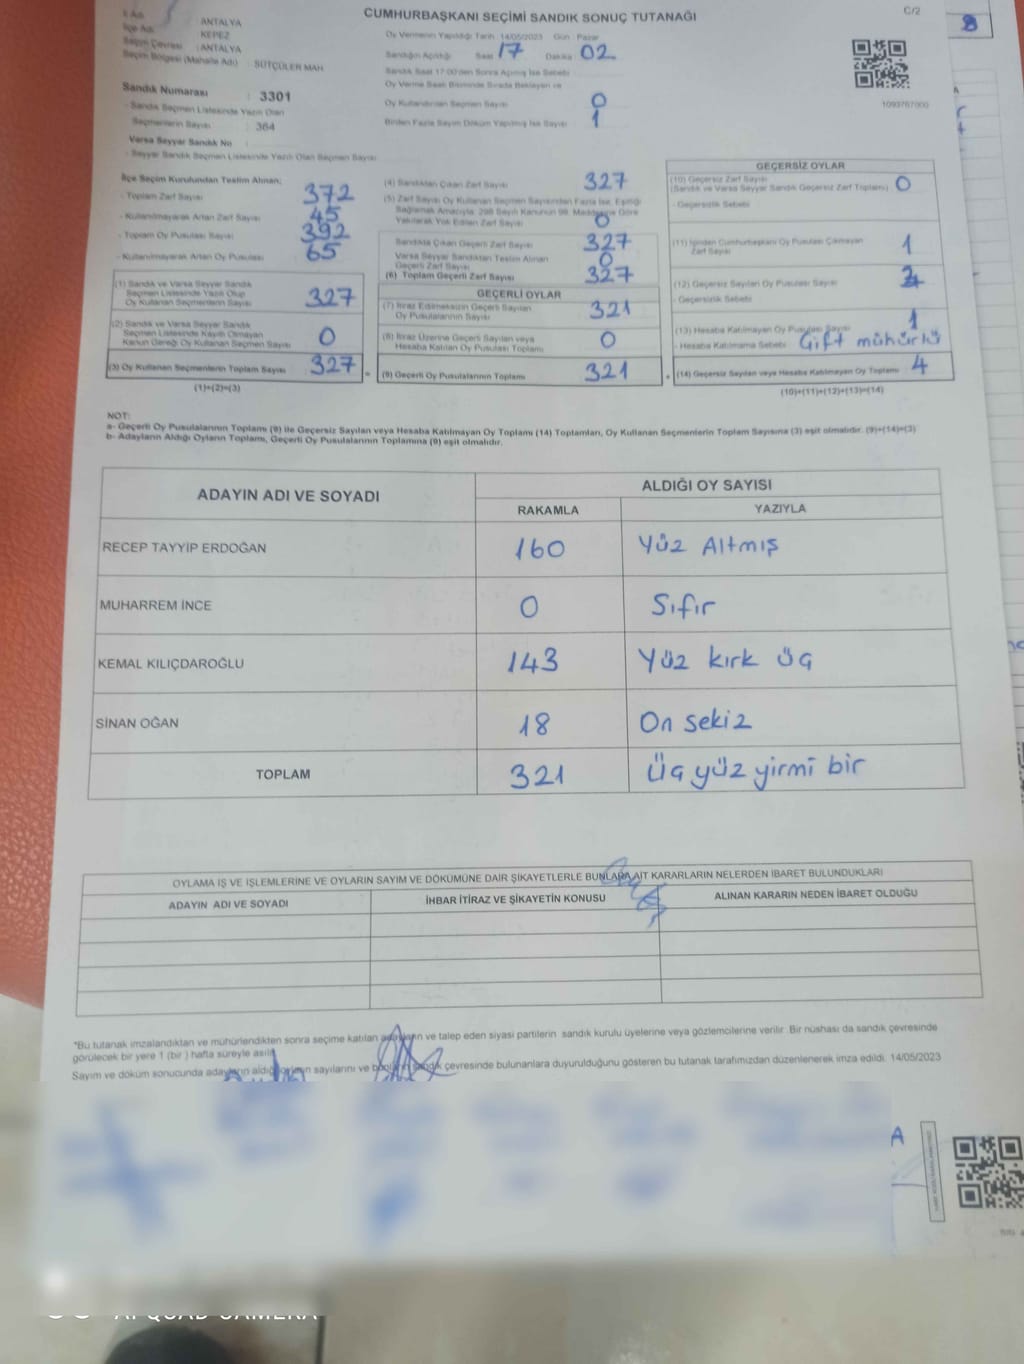 CUMHURBAŞKANI SEÇİMİ SANDIK SONUÇ TUTANAĞI
C/2
8
İli Adı ANTALYA
İlçe Adı KEPEZ
Seçim Çevresi : ANTALYA
Seçim Bölgesi (Mahalle Adı) : SÜTÇÜLER MAH.
Sandık Numarası : 3301
- Sandık Seçmen Listesinde Yazılı Olan
Seçmenlerin Sayısı : 364
Varsa Seyyar Sandık No
- Seyyar Sandık Seçmen Listesinde Yazılı Olan Seçmen Sayısı
Oy Vermenin Yapıldığı Tarih : 14/05/2023 Gün : Pazar
Sandığın Açıldığı Saat 17 Dakika 02
Sandık Saat 17:00'den Sonra Açılmış İse Sebebi
Oy Verme Saati Bitiminde Sırada Bekleyen ve
Oy Kullandırılan Seçmen Sayısı 0
Birden Fazla Sayım Döküm Yapılmış İse Sayısı 1
1093767000
İlçe Seçim Kurulundan Teslim Alınan;
- Toplam Zarf Sayısı 372
- Kullanılmayarak Artan Zarf Sayısı 45
- Toplam Oy Pusulası Sayısı 392
- Kullanılmayarak Artan Oy Pusulası 65
(1) Sandık ve Varsa Seyyar Sandık
Seçmen Listesinde Yazılı Olup
Oy Kullanan Seçmenlerin Sayısı 327
(2) Sandık ve Varsa Seyyar Sandık
Seçmen Listesinde Kayıtlı Olmayan
Kanun Gereği Oy Kullanan Seçmen Sayısı 0
(3) Oy Kullanan Seçmenlerin Toplam Sayısı 327
(1)+(2)=(3)
(4) Sandıktan Çıkan Zarf Sayısı 327
(5) Zarf Sayısı Oy Kullanan Seçmen Sayısından Fazla İse, Eşitliği
Sağlamak Amacıyla, 298 Sayılı Kanunun 98. Maddesine Göre
Yakılarak Yok Edilen Zarf Sayısı 0
Sandıkta Çıkan Geçerli Zarf Sayısı 327
Varsa Seyyar Sandıktan Teslim Alınan
Geçerli Zarf Sayısı 0
(6) Toplam Geçerli Zarf Sayısı 327
GEÇERLİ OYLAR
(7) İtiraz Edilmeksizin Geçerli Sayılan
Oy Pusulalarının Sayısı 321
(8) İtiraz Üzerine Geçerli Sayılan veya
Hesaba Katılan Oy Pusulası Toplamı 0
(9) Geçerli Oy Pusulalarının Toplamı 321
GEÇERSİZ OYLAR
(10) Geçersiz Zarf Sayısı
(Sandık ve Varsa Seyyar Sandık Geçersiz Zarf Toplamı) 0
- Geçersizlik Sebebi
(11) İçinden Cumhurbaşkanı Oy Pusulası Çıkmayan
Zarf Sayısı 1
(12) Geçersiz Sayılan Oy Pusulası Sayısı
- Geçersizlik Sebebi
(13) Hesaba Katılmayan Oy Pusulası Sayısı 1
- Hesaba Katılmama Sebebi : Çift mühürlü
(14) Geçersiz Sayılan veya Hesaba Katılmayan Oy Toplamı 4
(10)+(11)+(12)+(13)=(14)
NOT:
a- Geçerli Oy Pusulalarının Toplamı (9) ile Geçersiz Sayılan veya Hesaba Katılmayan Oy Toplamı (14) Toplamları, Oy Kullanan Seçmenlerin Toplam Sayısına (3) eşit olmalıdır. (9)+(14)=(3)
b- Adayların Aldığı Oyların Toplamı, Geçerli Oy Pusulalarının Toplamına (9) eşit olmalıdır.
ADAYIN ADI VE SOYADI ALDIĞI OY SAYISI
RAKAMLA YAZIYLA
RECEP TAYYİP ERDOĞAN 160 Yüz Altmış
MUHARREM İNCE 0 Sıfır
KEMAL KILIÇDAROĞLU 143 Yüz kırk üç
SİNAN OĞAN 18 On sekiz
TOPLAM 321 Üç yüz yirmi bir
OYLAMA İŞ VE İŞLEMLERİNE VE OYLARIN SAYIM VE DÖKÜMÜNE DAİR ŞİKAYETLERLE BUNLARA AİT KARARLARIN NELERDEN İBARET BULUNDUKLARI
ADAYIN ADI VE SOYADI İHBAR İTİRAZ VE ŞİKAYETİN KONUSU ALINAN KARARIN NEDEN İBARET OLDUĞU
*Bu tutanak imzalandıktan ve mühürlendikten sonra seçime katılan adayların ve talep eden siyasi partilerin sandık kurulu üyelerine veya gözlemcilerine verilir. Bir nüshası da sandık çevresinde
görülecek bir yere 1 (bir) hafta süreyle asılır.
Sayım ve döküm sonucunda adayların aldığı oyların sayılarını ve sandık çevresinde bulunanlara duyurulduğunu gösteren bu tutanak tarafımızdan düzenlenerek imza edildi. 14/05/2023
A
QUAD CAMERA